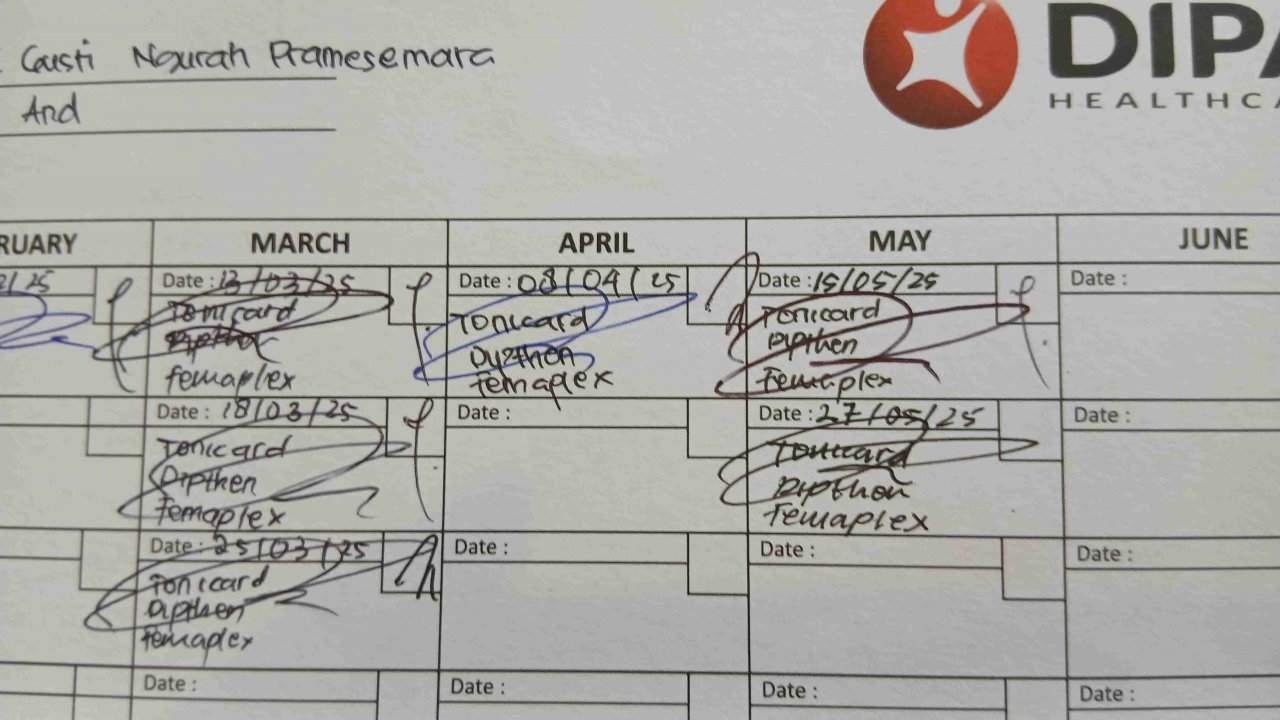 Gusti Ngurah Pramesemara
And
DIPA
HEALTHCA
RUARY
MARCH
APRIL
MAY
JUNE
/25
Date : 13/03/25
Tonicard
femaplex
Date : 08/04/25
Tonicard
Dypthen
Femaplex
Date : 15/05/25
Tonicard
Dipthen
Femaplex
Date :
Date : 18/03/25
Tonicard
Dipthen
Femaplex
Date :
Date : 27/05/25
Tonicard
Dipthen
Femaplex
Date :
Date : 25/03/25
Tonicard
Dipthen
Femaplex
Date :
Date :
Date :
Date :
Date :
Date :
Date :